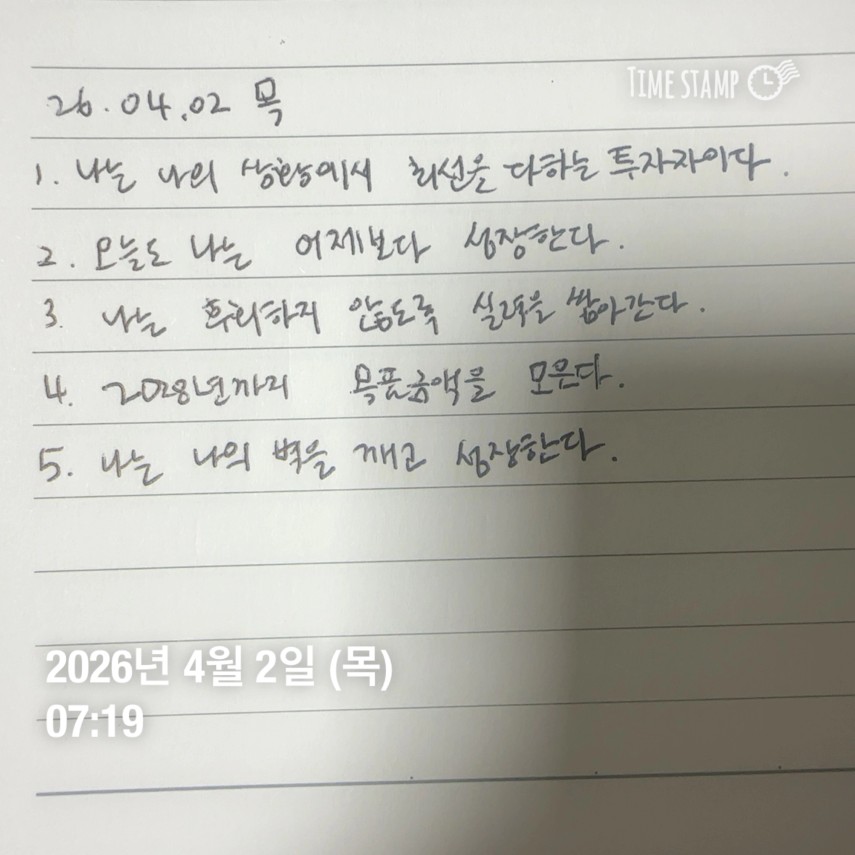 TIME STAMP
26.04.02 목
1. 나는 나의 상황에서 최선을 다하는 투자자이다.
2. 오늘도 나는 어제보다 성장한다.
3. 나는 후회하지 않도록 실력을 쌓아간다.
4. 2028년까지 목표금액을 모은다.
5. 나는 나의 벽을 깨고 성장한다.
2026년 4월 2일 (목)
07:19